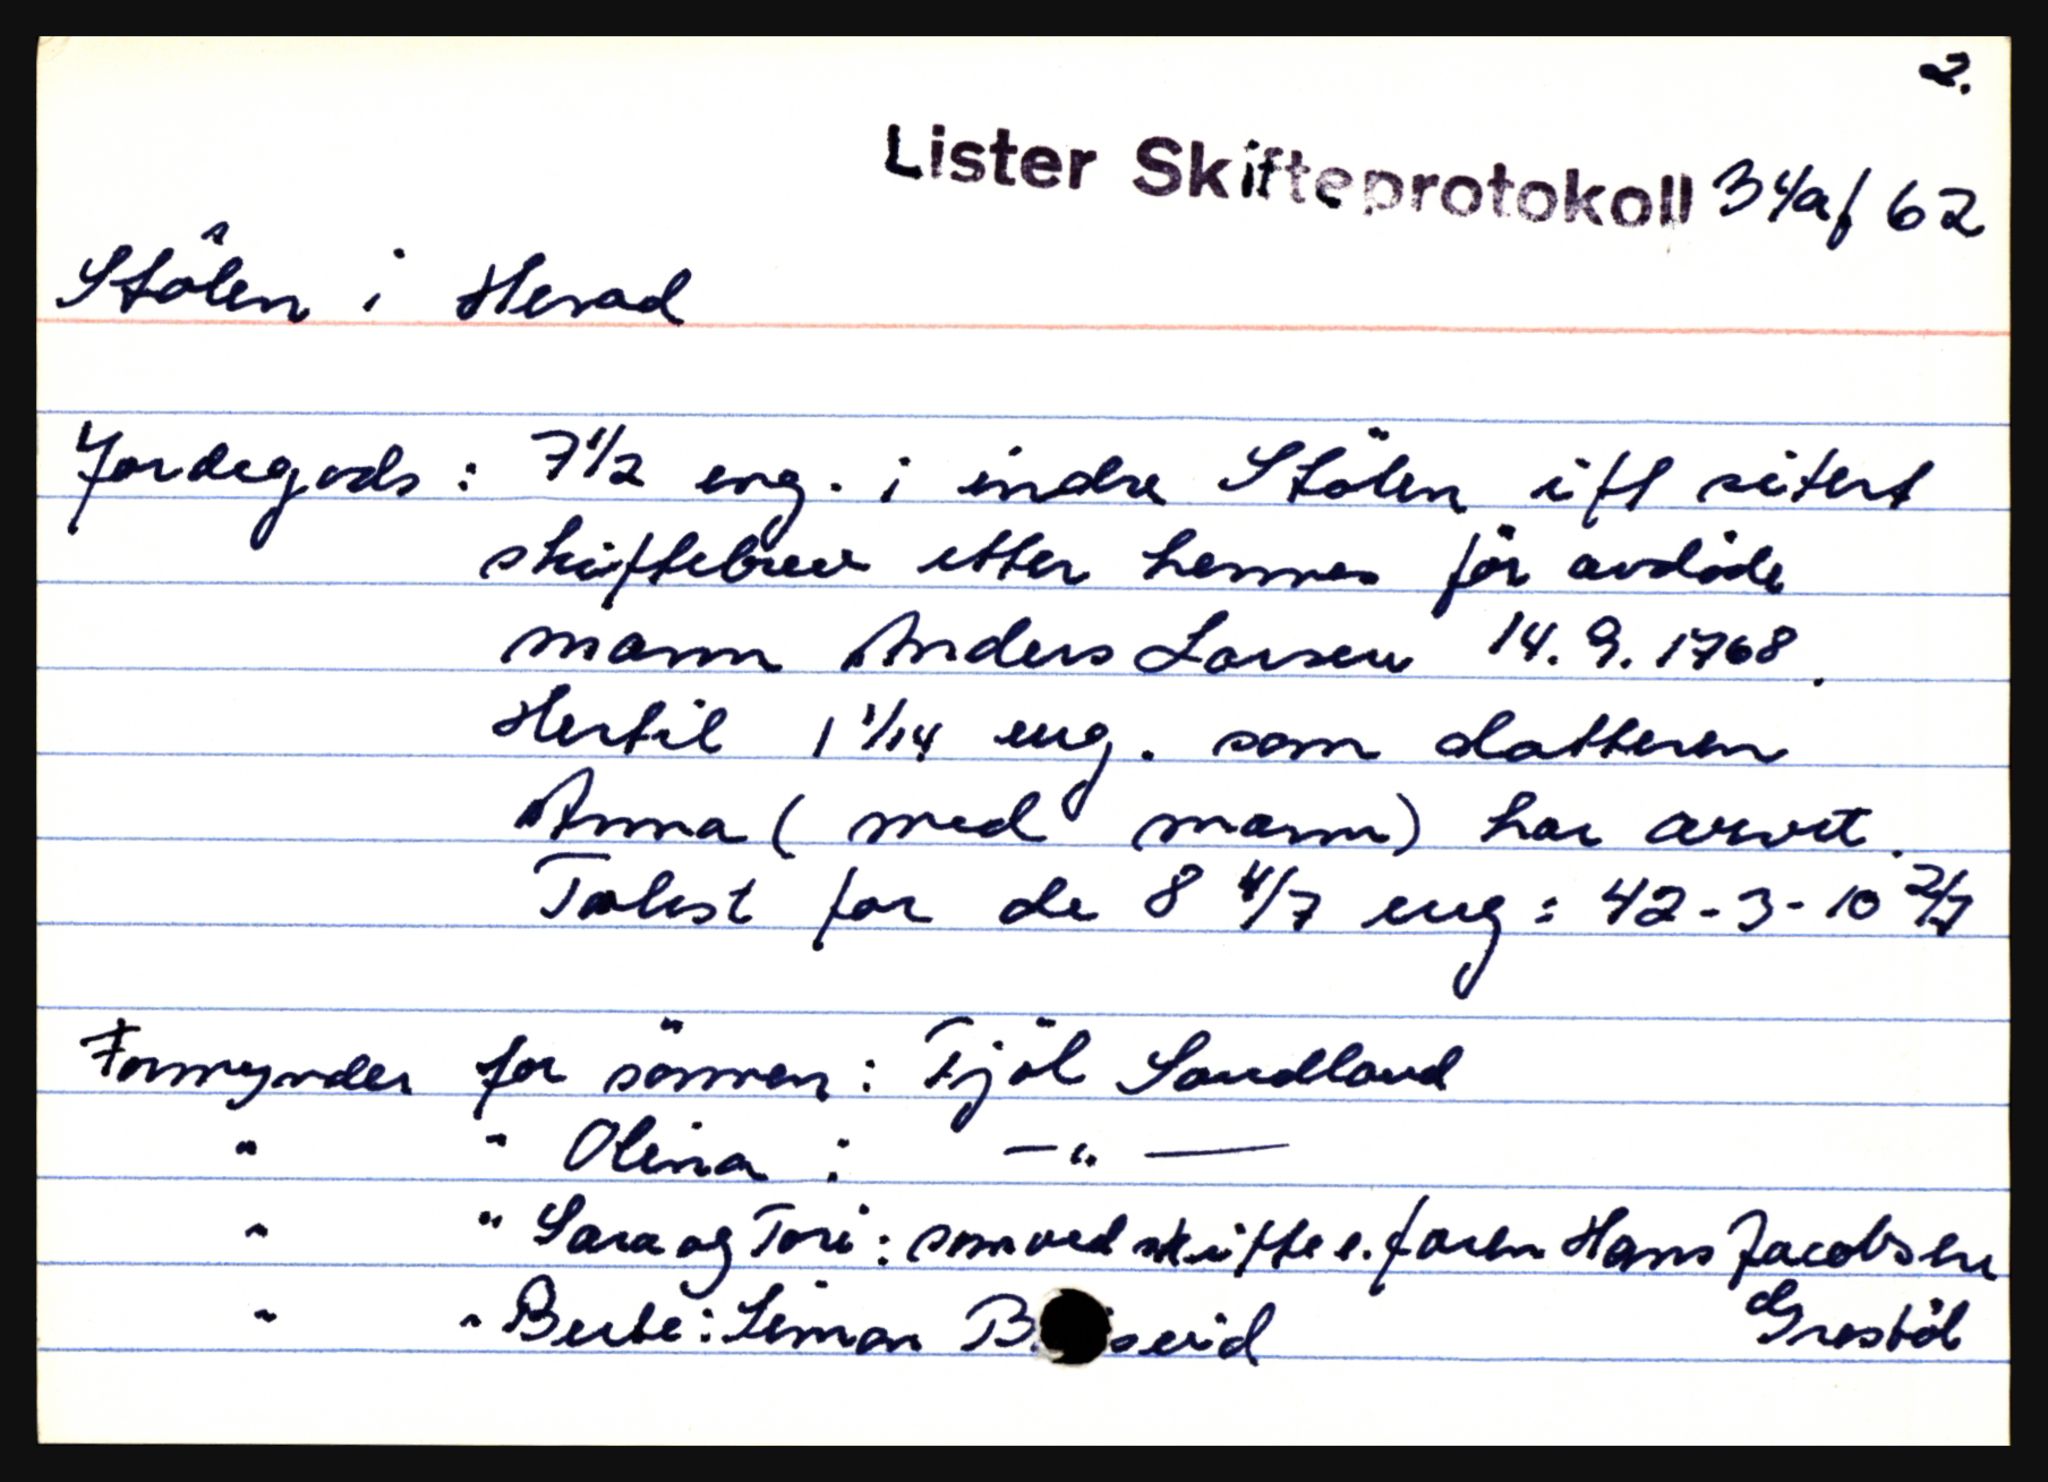 2.
Lister Skifteprotokoll 34a/ 62
Stölen i Herad
Jordegods: 7 1/2 eng. i indre Stölen ifl seitert
skiftebrev etter hennes för avdöde
mann Anders Larsen 14.9.1768.
Hertil 1 1/14 eng. som datteren
Anna (med mann) har arvet.
Takst for de 8 4/7 eng: 42-3-10 2/7
Formynder for sönnen: Tjöl Sandland
" " Olena: —"—
" " Sara og Tori: som ved skifte e. faren Hans Jacobsen
Grestöl
" " Berte: Simon